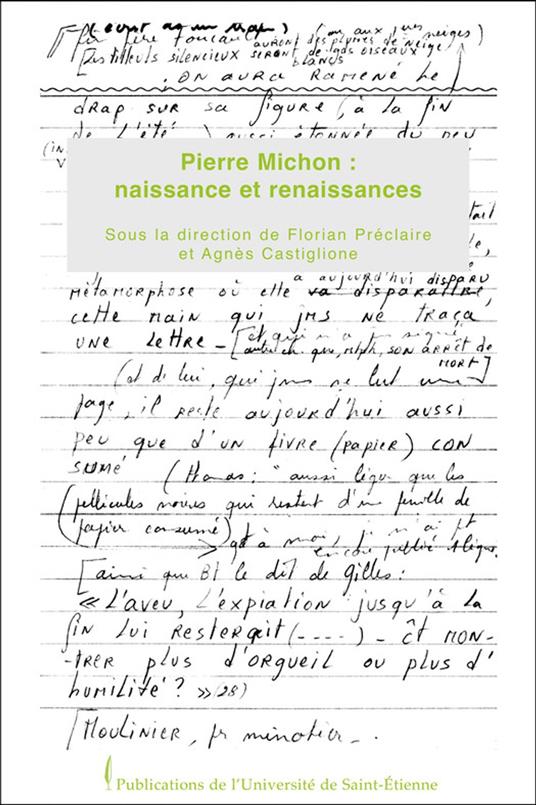 père Foucault
(ou aux jres neiges)
auront des plumes de neige
[Les tilleuls silencieux seront de gds oiseaux
blancs
, on aura ramené le
drap sur sa figure, à la fin
de l'été) aussi étonnée du peu
Pierre Michon :
naissance et renaissances
Sous la direction de Florian Préclaire
et Agnès Castiglione
a aujourd'hui disparu
métamorphose où elle va disparaître,
cette main qui jms ne traça
une lettre - [et qui n'a signé
que, mtph, son arrêt de
mort]
(et de lui, qui jms ne lut une
page, il reste aujourd'hui aussi
peu que d'un livre (papier) con
sumé
( : "aussi léger que les
pellicules noires qui restent d'une feuille de
papier consumé)
et à moi, je n'ai pt
encore publié 1 ligne.
[ainsi que Bt le dit de Gilles :
« L'aveu, l'expiation jusqu'à la
fin lui resterait (----) - ct mon-
-trer plus d'orgueil ou plus d'
humilité ? » (28)
[Moulinier, pr minotier -.
Publications de l'Université de Saint-Étienne